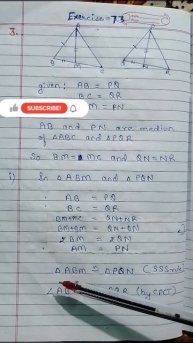 Exercise = 7.3
3.
given: AB = PQ
BC = QR
SUBSCRIBE
M = PN
AM and PN are median
of △ABC and △PQR
So BM = MC and QN = NR
i) In △ABM and △PQN
∴ AB = PQ
∴ BC = QR
BM+MC = QN+NR
BM+BM = QN+QN
2BM = 2QN
∴ AM = PN
△ABM ≅ △PQN (SSS
∠AB PQR (by CPCT)